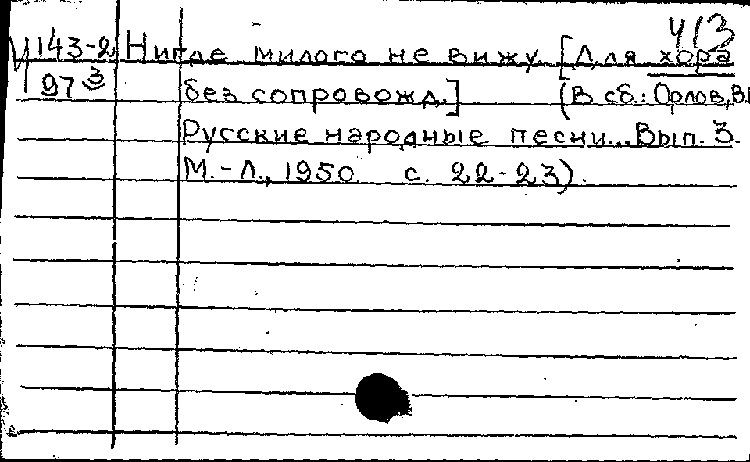 ч13
143-2 Нигде милого не вижу. [Для хора
97 3 без сопровожд.] (В сб.: Орлов, В.
Русские народные песни... Вып. 3.
М.-Л., 1950. с. 22-23).